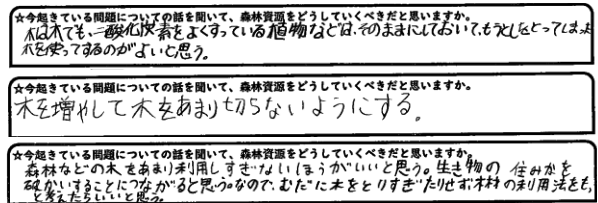 ☆今起きている問題についての話を聞いて、森林資源をどうしていくべきだと思いますか。
木は木でも、二酸化炭素をよくすっている植物などは、そのままにしておいて、もうとしをとってしまった
木を使ってするのがよいと思う。
☆今起きている問題についての話を聞いて、森林資源をどうしていくべきだと思いますか。
木を増やして木をあまり切らないようにする。
☆今起きている問題についての話を聞いて、森林資源をどうしていくべきだと思いますか。
森林などの木をあまり利用しすぎないほうがいいと思う。生き物の住みかを
破かいすることにつながると思う。なので、むだに木をとりすぎたりせず、木材の利用法をも、
と考えたらいいと思う。